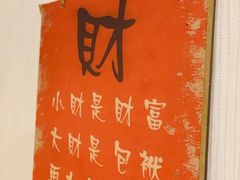 財
小財是財富
大財是包袱